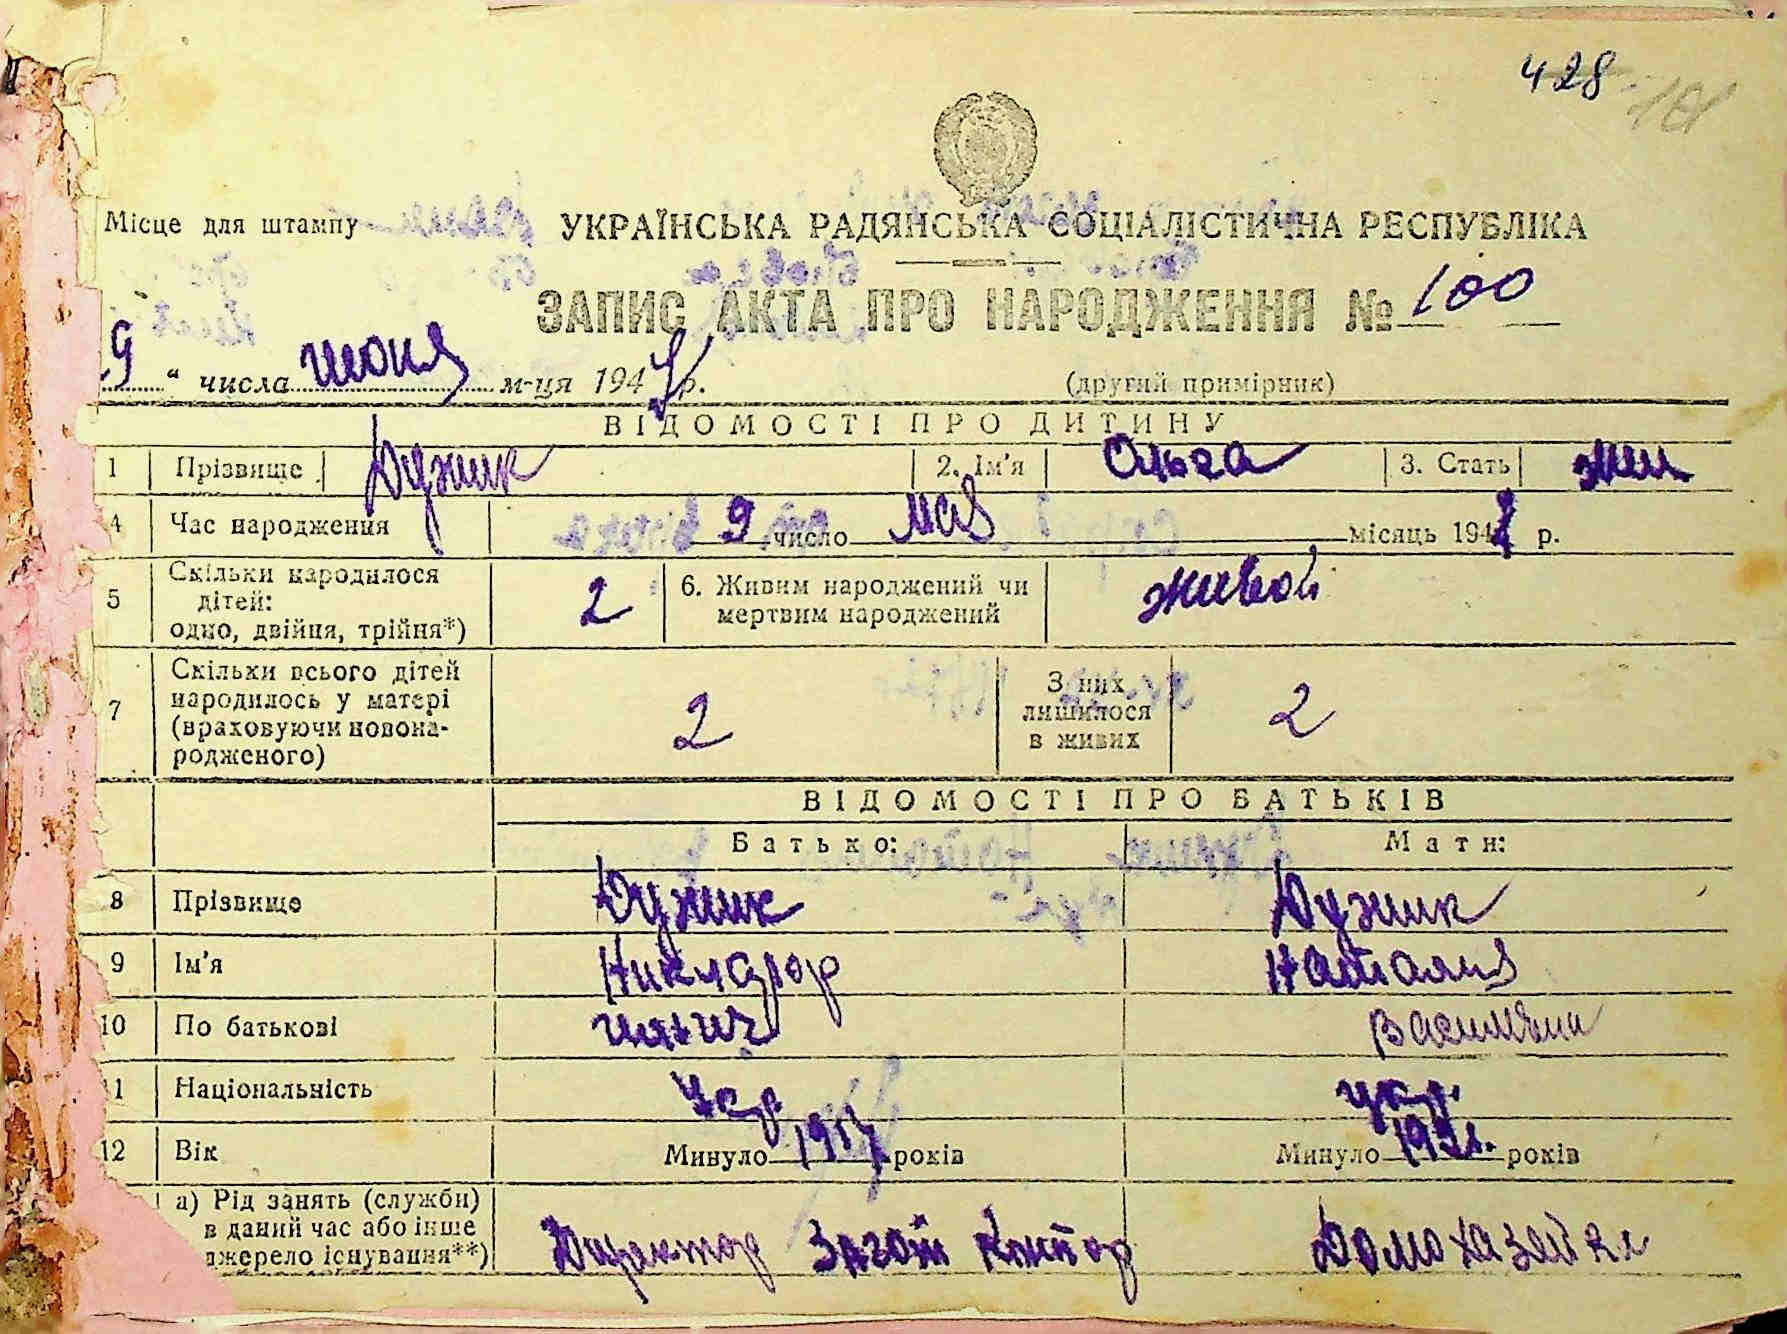 428 101
Місце для штампу
УКРАЇНСЬКА РАДЯНСЬКА СОЦІАЛІСТИЧНА РЕСПУБЛІКА
ЗАПИС АКТА ПРО НАРОДЖЕННЯ № 100
9 " числа июня м-ця 194 р.
(другий примірник)
ВІДОМОСТІ ПРО ДИТИНУ
1 Прізвище Дужик 2. Ім'я Ольга 3. Стать жен
4 Час народження 9 число мая місяць 194 р.
5 Скільки народилося
дітей:
одно, двійня, трійня*) 2
6. Живим народжений чи
мертвим народжений живой
7 Скільки всього дітей
народилось у матері
(враховуючи новона-
родженого) 2
З них
лишилося
в живих 2
ВІДОМОСТІ ПРО БАТЬКІВ
Батько: Мати:
8 Прізвище Дужик Дужик
9 Ім'я Никифор Наталия
10 По батькові Ильич
11 Національність Укр укр.
12 Вік Минуло 1917 років Минуло років
а) Рід занять (служби)
в даний час або інше
джерело існування**)
Директор Загот Контор Домохазейка